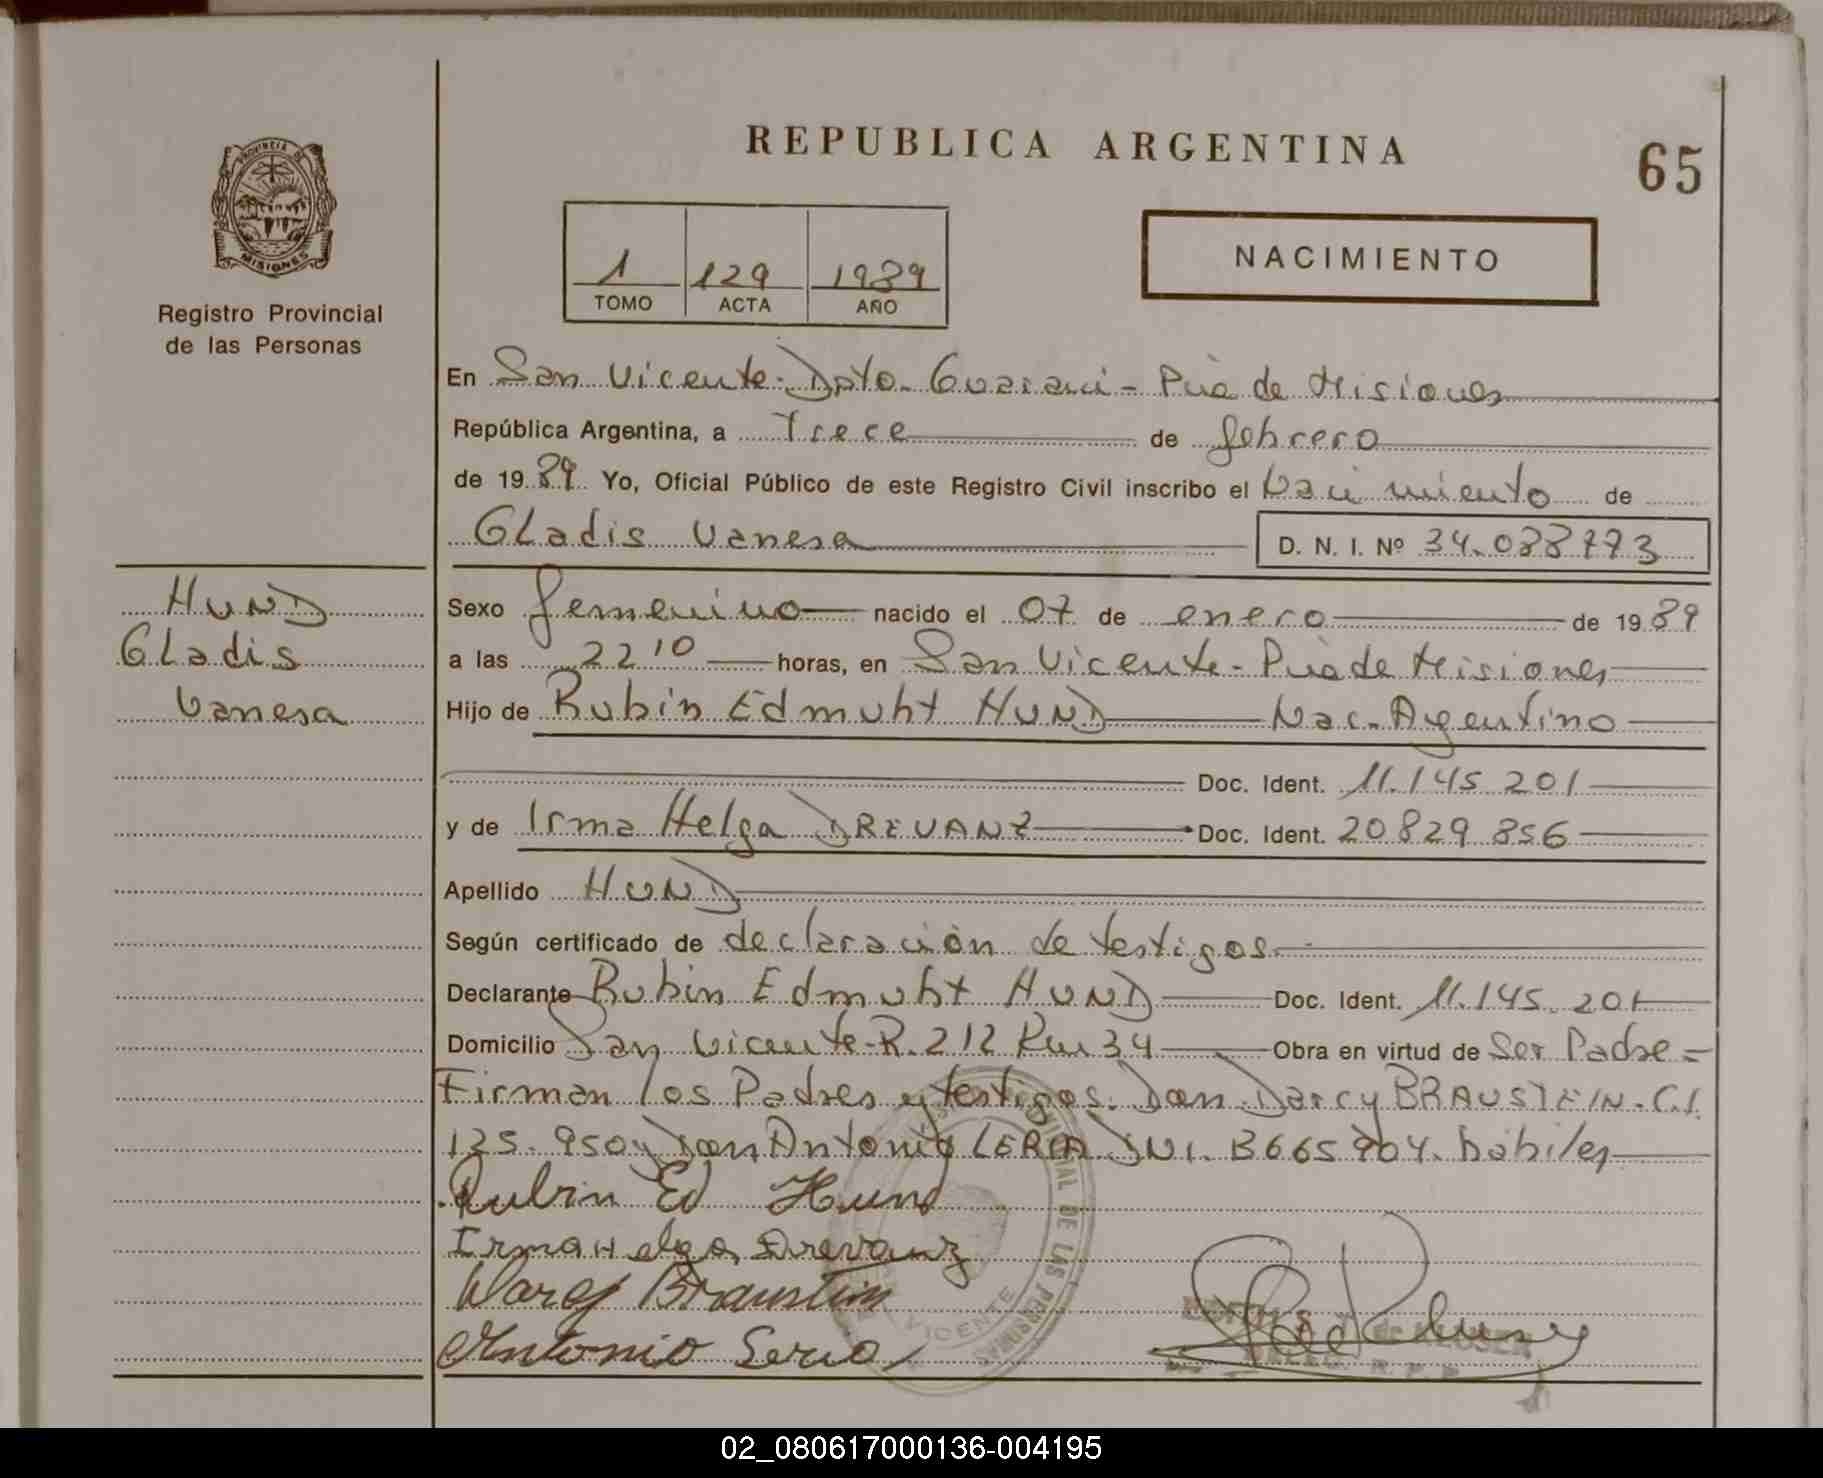 REPUBLICA ARGENTINA
65
PROVINCIA DE
MISIONES
Registro Provincial
de las Personas
1 129 1989
TOMO ACTA AÑO
NACIMIENTO
En San Vicente - Dpto. Guarani - Pcia de Misiones
República Argentina, a Trece de febrero
de 1989 Yo, Oficial Público de este Registro Civil inscribo el Nacimiento de
Gladis Vanesa D. N. I. Nº 34.088773
HUND
Gladis
Vanesa
Sexo femenino nacido el 07 de enero de 1989
a las 22'10 horas, en San Vicente - Pcia de Misiones
Hijo de Rubin Edmuht HUND Nac. Argentino
Doc. Ident. 11.145.201
y de Irma Helga DREVANZ Doc. Ident. 20829.856
Apellido HUND
Según certificado de declaración de testigos.
Declarante Rubin Edmuht HUND Doc. Ident. 11.145.201
Domicilio San Vicente - R. 212 Km 34 Obra en virtud de Ser Padre =
Firman los Padres y testigos. Don Darcy BRAUSTEIN. C.I.
135.950 y Don Antonio DNI. 8665704. hábiles
Rubin Ed Hund
Irma Helga Drevanz
Antonio
DE LAS PERSONAS
VICENTE
R. P. P.
02_080617000136-004195